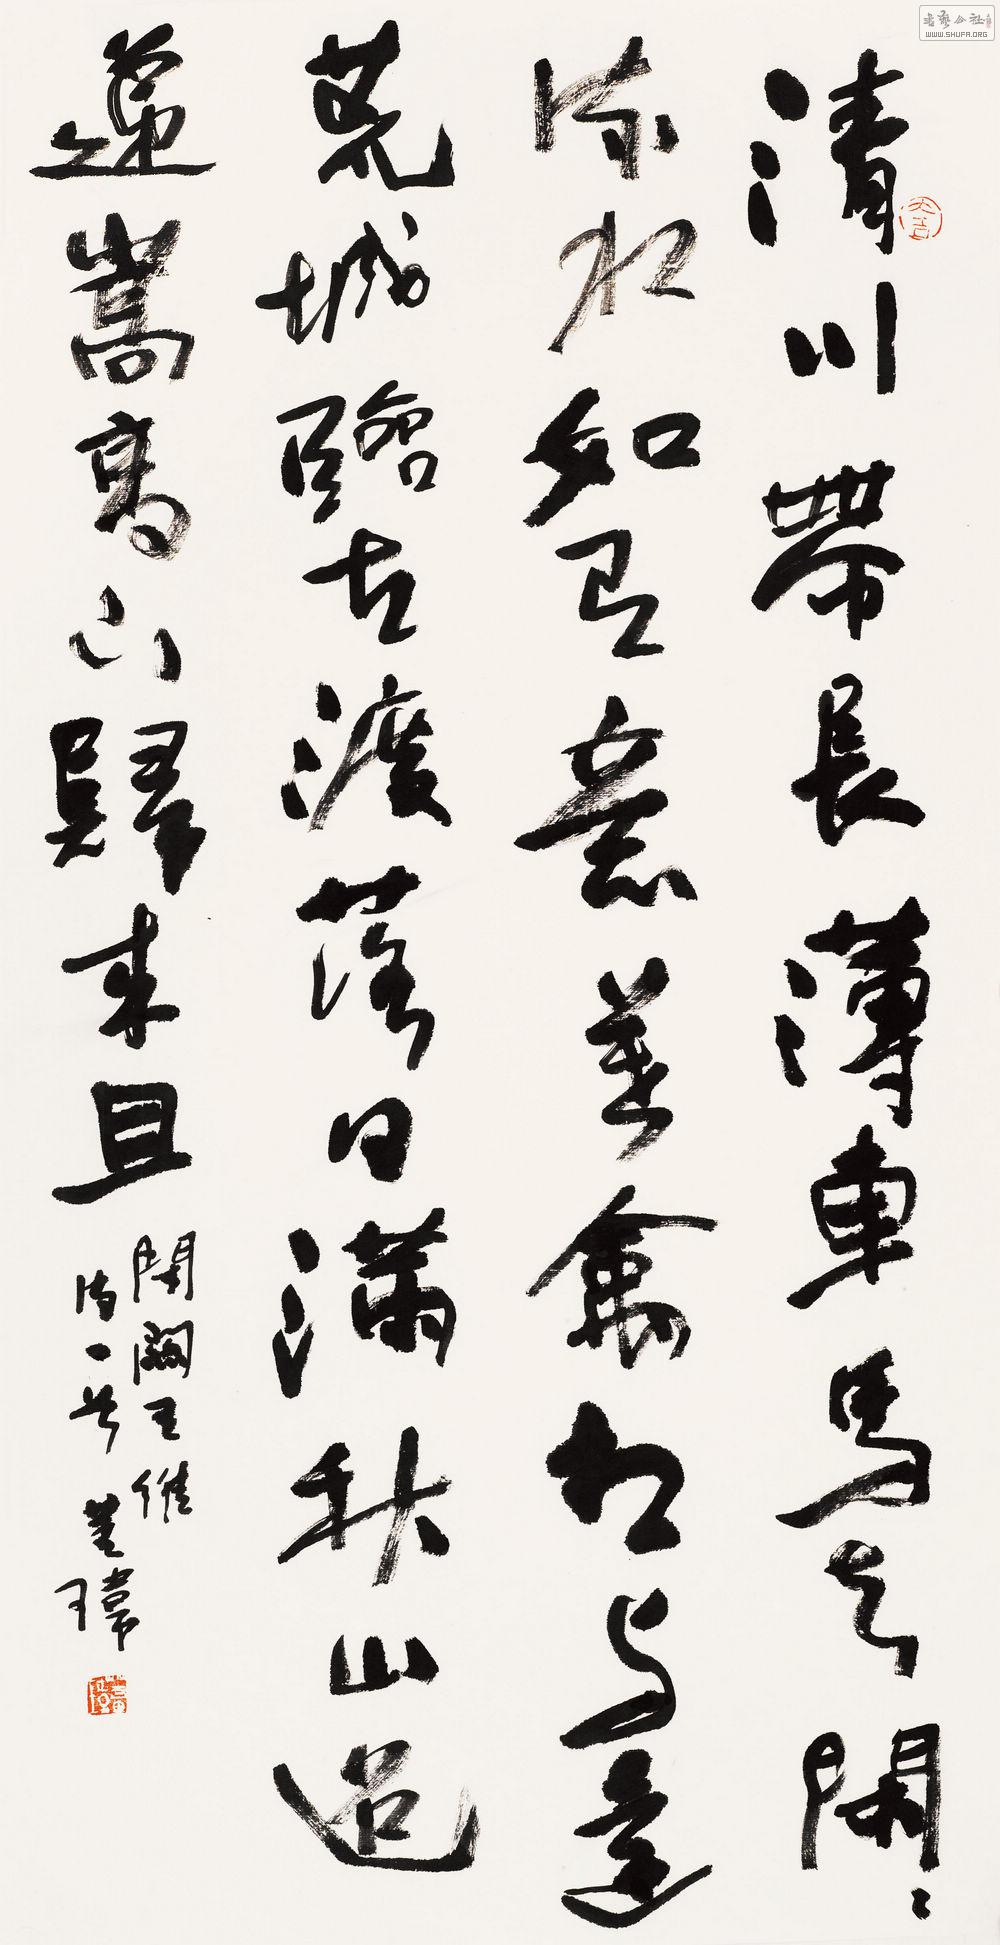 清川帶長薄車馬去閑〻
流水如有意暮禽相与還
荒城臨古渡落日滿秋山迢
遞嵩高下歸來且
閉關王維
詩一首 董瑋
书艺公社
WWW.SHUFA.ORG